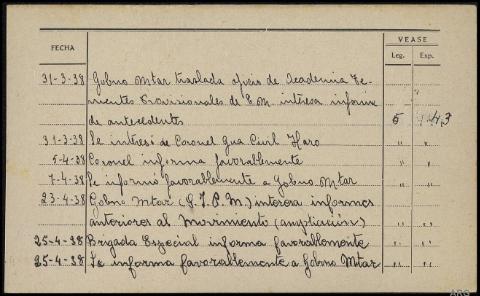 VEASE
FECHA Leg. Exp.
31-3-38 Gobno Mtar traslada oficio de Academia Te-
nientes Provisionales de E.M. intresa informe
de antecedentes 5 143
31-3-38 Se intresó de Coronel Gua Civil Haro " "
5-4-38 Coronel informa favorablemente " "
7-4-38 Se informó favorablemente a Gobno Mtar " "
23-4-38 Gobno Mtar (S.I.P.M.) interesa informes
anteriores al Movimiento (ampliación) " "
25-4-38 Brigada Especial informa favorablemente " "
25-4-38 Se informa favorablemente a Gobno Mtar " "